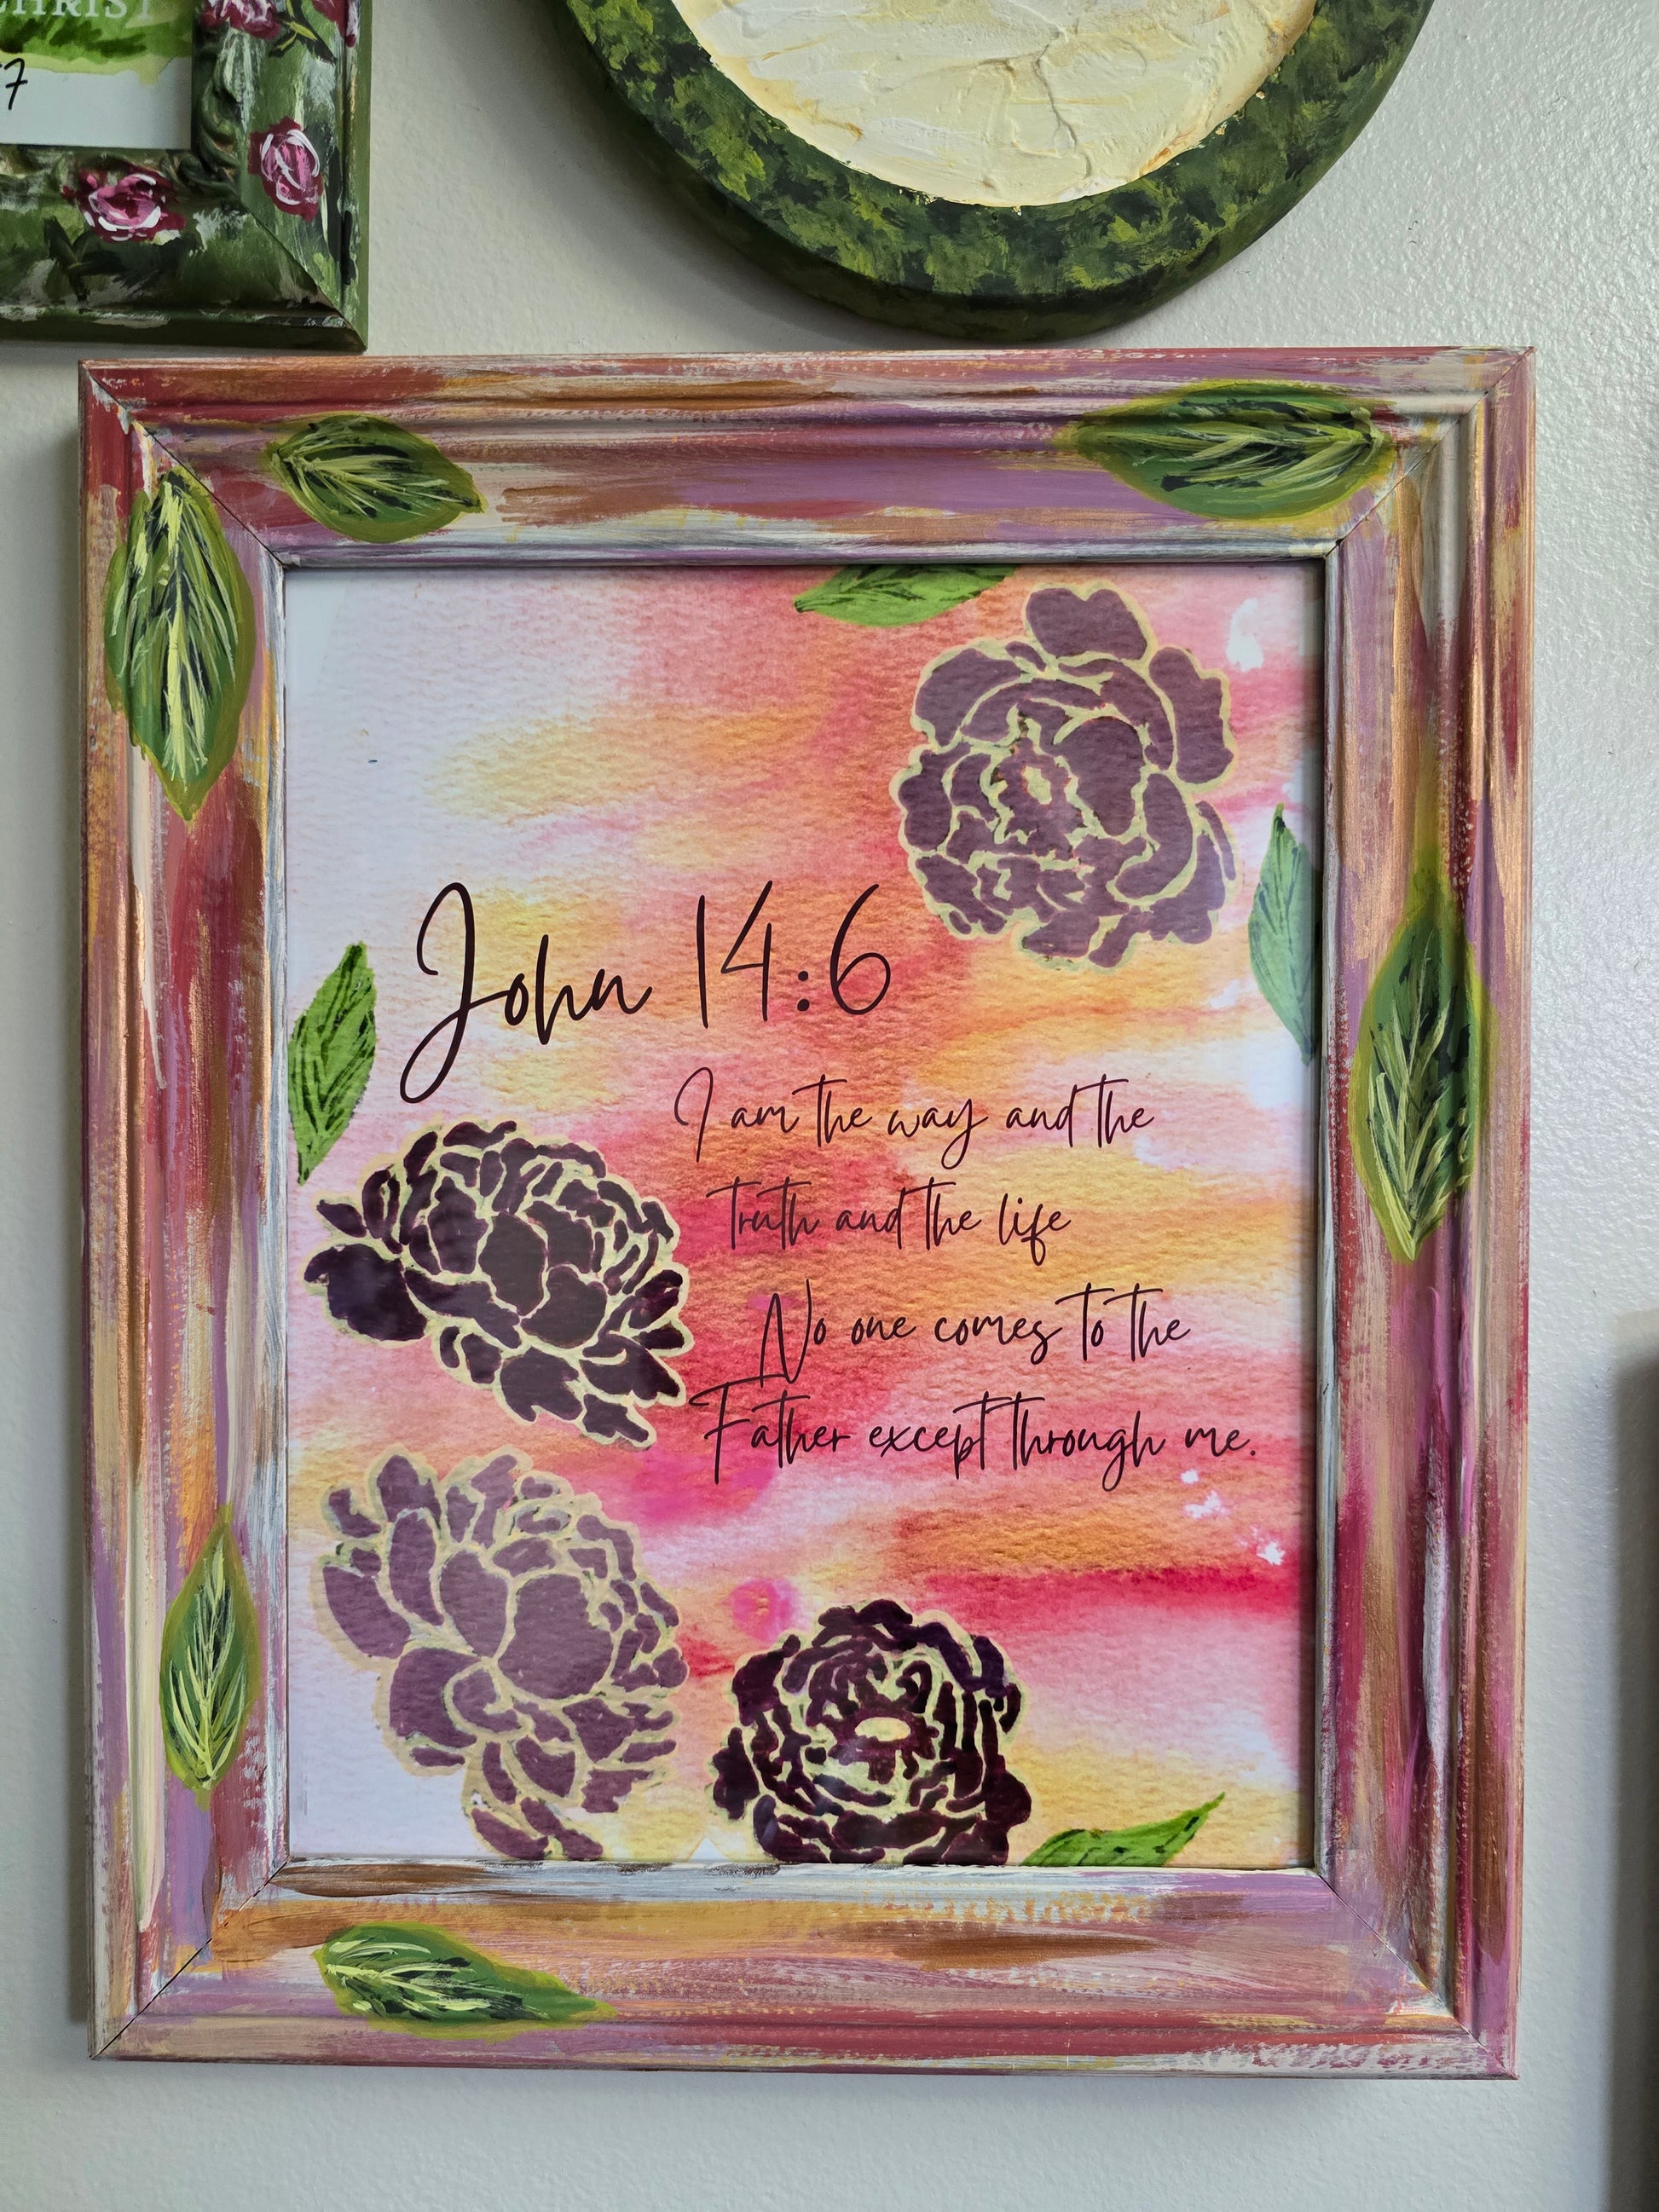 CHRIST
7
John 14:6
I am the way and the
truth and the life
No one comes to the
Father except through me.